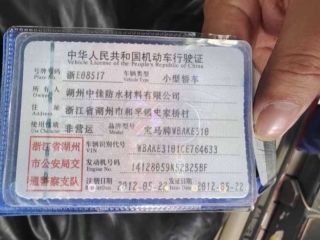 中华人民共和国机动车行驶证
Vehicle License of the People's Republic of China
号牌号码 浙E08517 车辆类型 小型轿车
Vehicle Type
所有人 湖州中佳防水材料有限公司
Owner
住址 浙江省湖州市和孚镇史家桥村
Address
非营运 宝马牌WBAKE310
浙江省湖州
市公安局交
通警察支队
车辆识别代号
VIN
WBAKE3101CE764633
发动机号码
14128059N52B25BF
注册日期 2012-05-22 2012-05-22